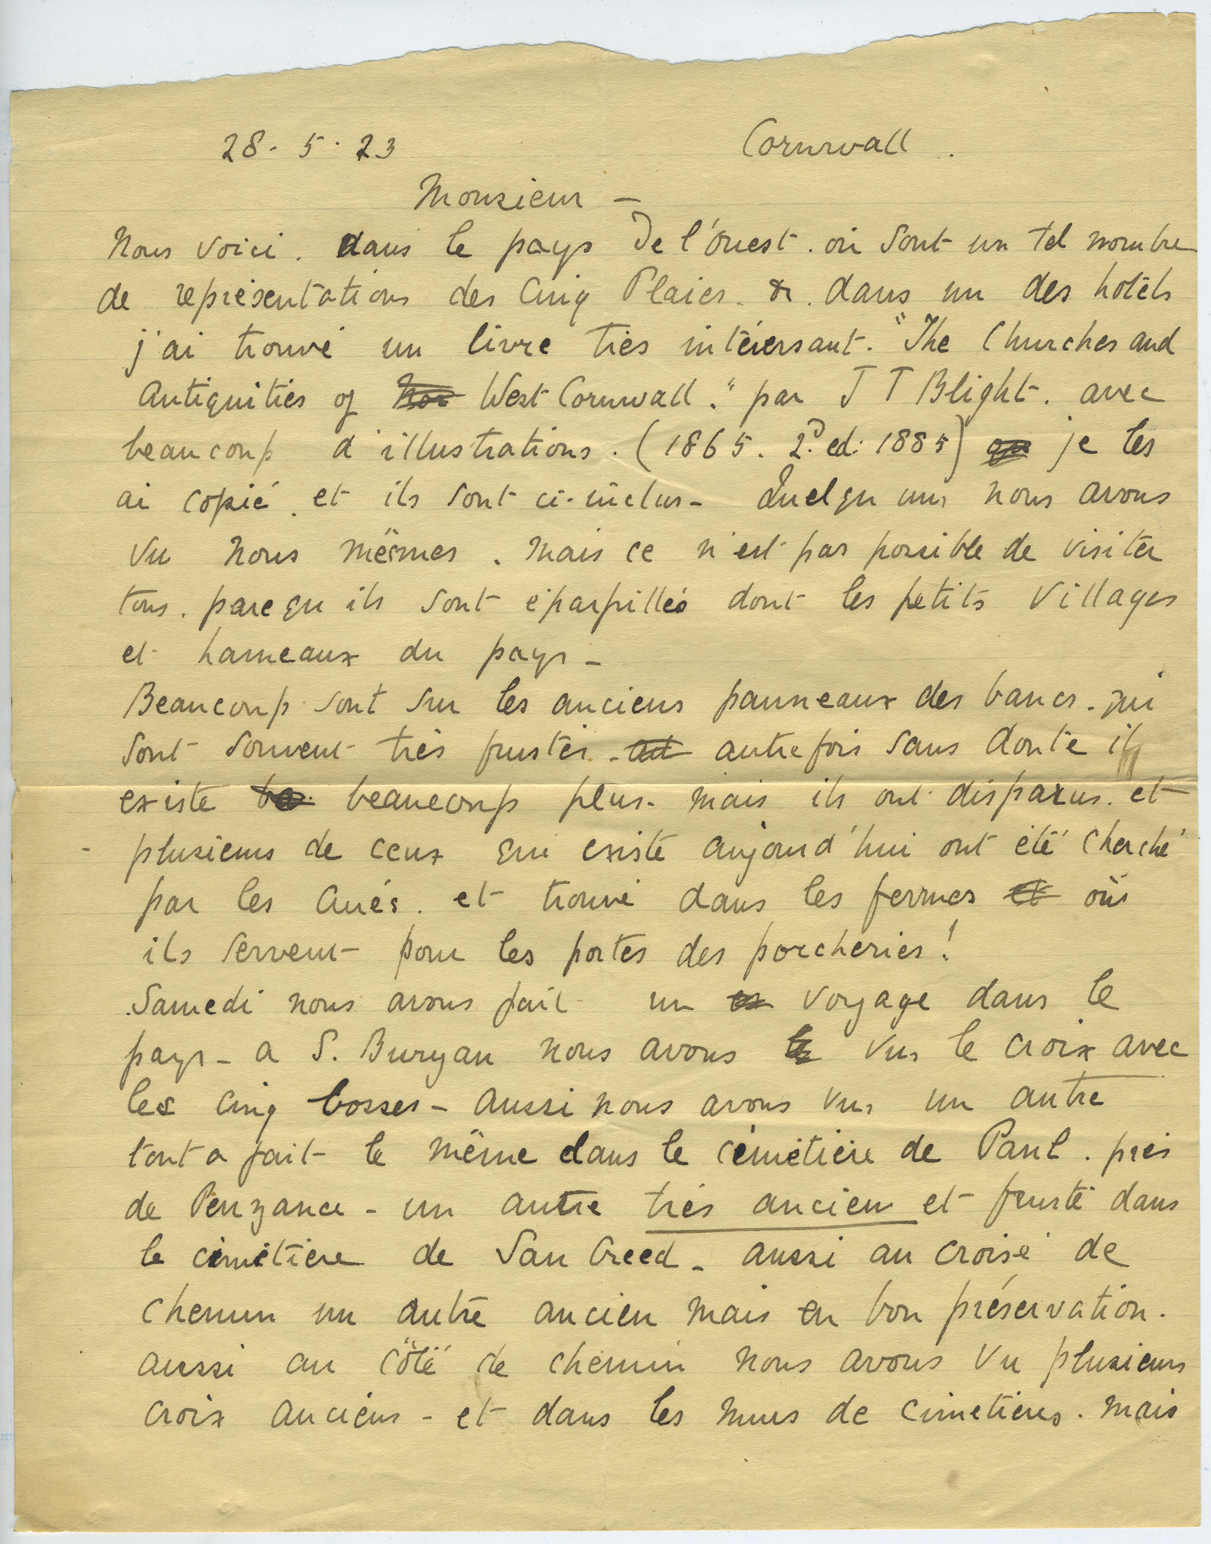 28. 5. 23 Cornwall.
Monsieur —
Nous voici. dans le pays de l'Ouest. où sont un tel nombre
de représentations des Cinq Plaies. & dans un des hotels
j'ai trouvé un livre très intéressant. "The Churches and
Antiquities of West Cornwall." par J T Blight. avec
beaucoup d'illustrations. (1865. 2d. ed: 1885) je les
ai copié. et ils sont ci-inclus - Quelqu uns nous avons
vu nous mêmes. mais ce n'est pas possible de visiter
tous. parcequ ils sont éparpillés dont les petits villages
et hameaux du pays -
Beaucoup sont sur les anciens panneaux des bancs. qui
sont souvent très frustes - autrefois sans doute il
existe beaucoup plus. mais ils ont disparus. et
- plusieurs de ceux qui existe aujourd'hui ont été cherché
par les curés. et trouvé dans les fermes où
ils servent pour les portes des porcheries!
Samedi nous avons fait un voyage dans le
pays - a S. Buryan nous avons vus le croix avec
les cinq bosses - aussi nous avons vus un autre
tout a fait le même dans le cémétière de Paul. près
de Penzance - un autre très ancien et fruste dans
le cimétière de San Creed - aussi au croisé de
chemin un autre ancien mais en bon préservation.
aussi au côté de chemin nous avons vu plusieurs
croix anciens - et dans les murs de cimetières. mais